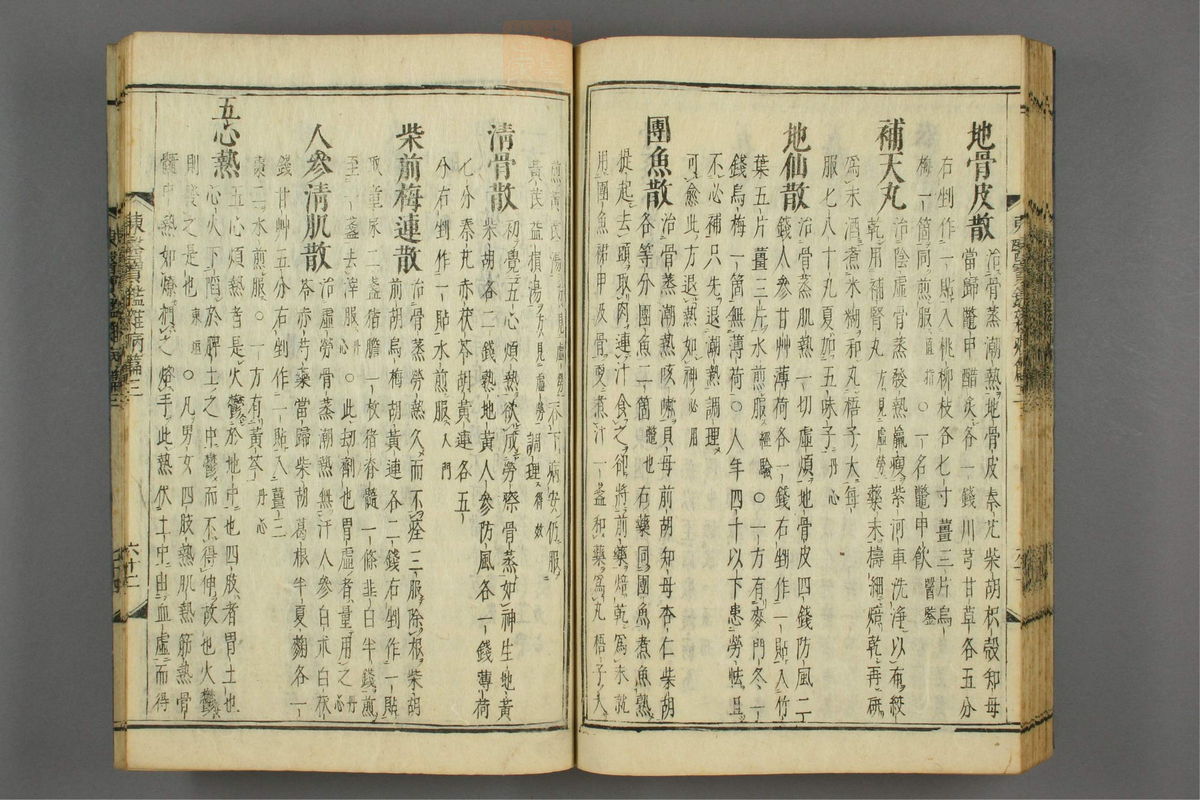 地骨皮散 治骨蒸潮熱地骨皮秦艽柴胡枳殼知母
當歸鼈甲醋炙各一錢川芎甘草各五分
右剉作一貼入桃柳枝各七寸薑三片烏
梅一箇同煎服直指○一名鼈甲飮醫鑒
補天丸 治陰虛骨蒸發熱羸瘦紫河車洗淨以布絞
乾用補腎丸方見虛勞藥末擣細焙乾再研
爲末酒煮米糊和丸梧子大每
服七八十丸夏加五味子丹心
地仙散 治骨蒸肌熱一切虛煩地骨皮四錢防風二
錢人參甘艸薄荷各一錢右剉作一貼入竹
葉五片薑三片水煎服經驗○一方有麥門冬一
錢烏梅一箇無薄荷○人年四十以下患勞怯且
不必補只先退潮熱調理
可愈此方退熱如神必用
團魚散 治骨蒸潮熱咳嗽貝母前胡知母杏仁柴胡
各等分團魚二箇鼈也右藥同團魚煮魚熟
提起去頭取肉連汁食之却將前藥焙乾爲末就
用團魚裙甲及骨更煮汁一盞和藥爲丸梧子大
煎黃芪湯
黃芪益損湯方見虛勞調理得效
清骨散 初覺五心煩熱欲成勞瘵骨蒸如神生地黃
柴胡各二錢熟地黃人參防風各一錢薄荷
七分秦艽赤茯苓胡黃連各五
分右剉作一貼水煎服入門
柴前梅連散 治骨蒸勞熱久而不痊三服除根柴胡
前胡烏梅胡黃連各二錢右剉作一貼
取童尿二盞猪膽一枚猪脊髓一條韭白半錢煎
至一盞去滓服丹心○此劫劑也胃虛者量用之丹心
人參清肌散 治虛勞骨蒸潮熱無汗人參白朮白茯
苓赤芍藥當歸柴胡葛根半夏麴各一
錢甘艸五分右剉作二貼入薑三
棗二水煎服○一方有黃芩丹心
五心熱 五心煩熱者是火鬱於地中也四肢者胃土也
心火下陷於脾土之中鬱而不得伸故也火鬱
則發之是也東垣○凡男女四肢熱肌熱筋熱骨
髓中熱如燎捫之烙手此熱伏土中由血虛而得
東醫寶鑑雜病篇三
六十二